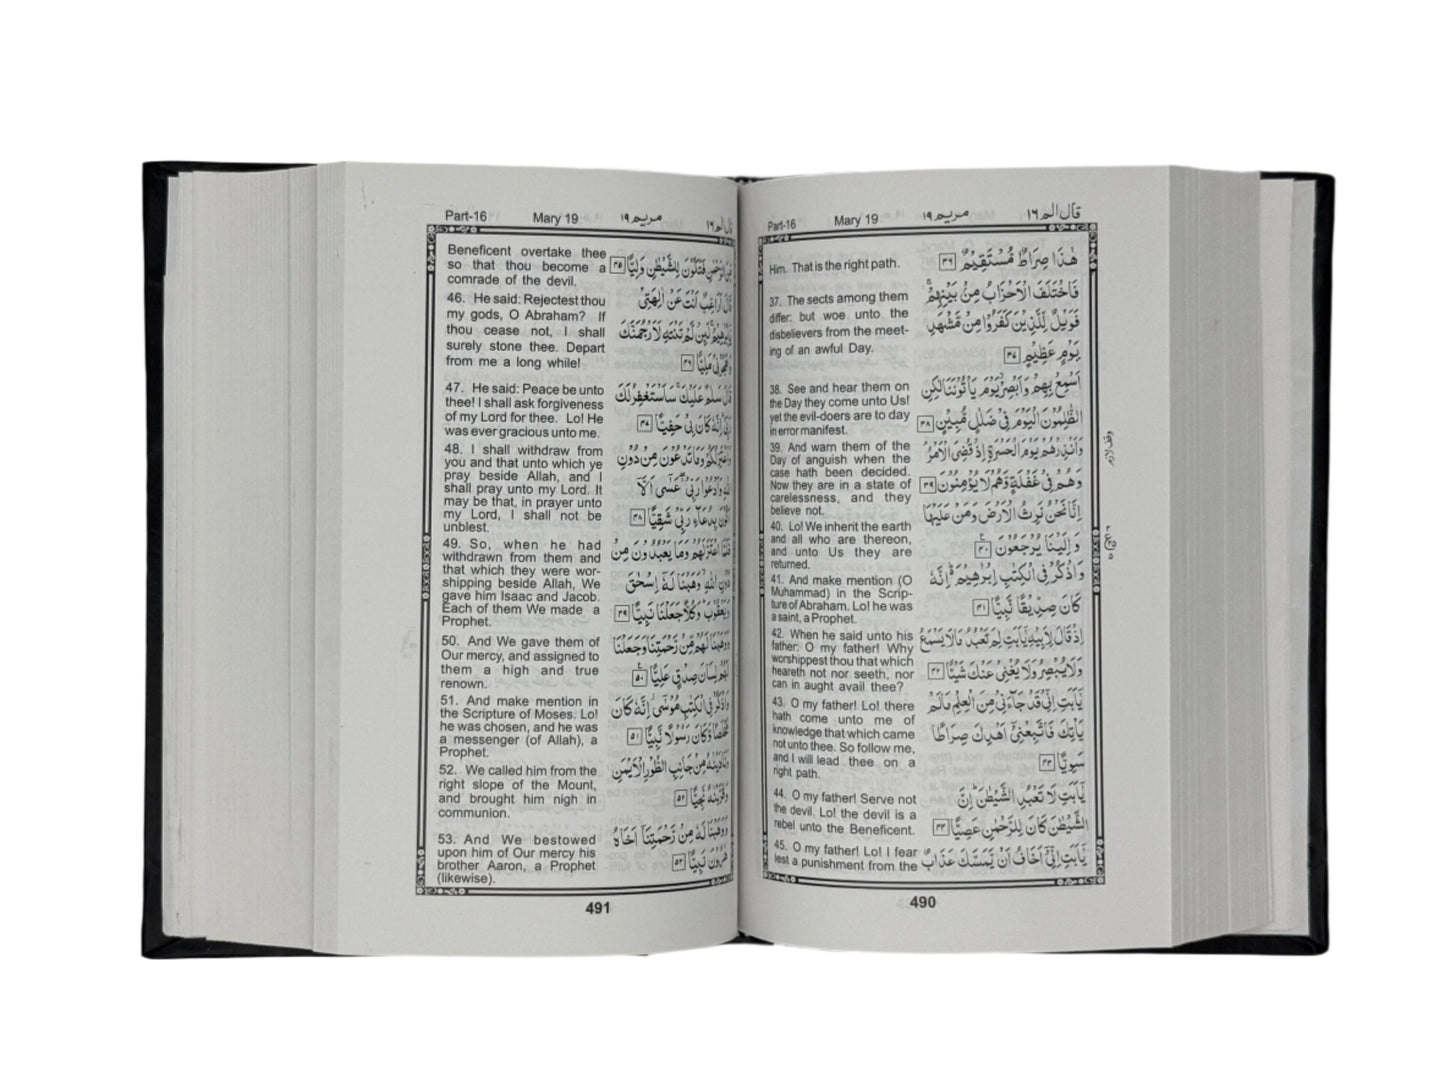 Part-16 Mary 19 مريم ١٩ قال الم ١٦
Him. That is the right path.
37. The sects among them
differ: but woe unto the
disbelievers from the meet-
ing of an awful Day.
38. See and hear them on
the Day they come unto Us!
yet the evil-doers are to day
in error manifest.
39. And warn them of the
Day of anguish when the
case hath been decided.
Now they are in a state of
carelessness, and they
believe not.
40. Lo! We inherit the earth
and all who are thereon,
and unto Us they are
returned.
41. And make mention (O
Muhammad) in the Scrip-
ture of Abraham. Lo! he was
a saint, a Prophet.
42. When he said unto his
father: O my father! Why
worshippest thou that which
heareth not nor seeth, nor
can in aught avail thee?
43. O my father! Lo! there
hath come unto me of
knowledge that which came
not unto thee. So follow me,
and I will lead thee on a
right path.
44. O my father! Serve not
the devil. Lo! the devil is a
rebel unto the Beneficent.
45. O my father! Lo! I fear
lest a punishment from the
هٰذَا صِرَاطٌ مُّسْتَقِيْمٌ ٣٦
فَاخْتَلَفَ الْاَحْزَابُ مِنْۢ بَيْنِهِمْ ۚ
فَوَيْلٌ لِّلَّذِيْنَ كَفَرُوْا مِنْ مَّشْهَدِ
يَوْمٍ عَظِيْمٍ ٣٧
اَسْمِعْ بِهِمْ وَاَبْصِرْ ۙ يَوْمَ يَاْتُوْنَنَا لٰكِنِ
الظّٰلِمُوْنَ الْيَوْمَ فِيْ ضَلٰلٍ مُّبِيْنٍ ٣٨
وَاَنْذِرْهُمْ يَوْمَ الْحَسْرَةِ اِذْ قُضِيَ الْاَمْرُ ۘ
وَهُمْ فِيْ غَفْلَةٍ وَّهُمْ لَا يُؤْمِنُوْنَ ٣٩
اِنَّا نَحْنُ نَرِثُ الْاَرْضَ وَمَنْ عَلَيْهَا
وَاِلَيْنَا يُرْجَعُوْنَ ٤٠
وَاذْكُرْ فِي الْكِتٰبِ اِبْرٰهِيْمَ ۛ اِنَّهٗ
كَانَ صِدِّيْقًا نَّبِيًّا ٤١
اِذْ قَالَ لِاَبِيْهِ يٰٓاَبَتِ لِمَ تَعْبُدُ مَا لَا يَسْمَعُ
وَلَا يُبْصِرُ وَلَا يُغْنِيْ عَنْكَ شَيْـًٔا ٤٢
يٰٓاَبَتِ اِنِّيْ قَدْ جَآءَنِيْ مِنَ الْعِلْمِ مَا لَمْ
يَاْتِكَ فَاتَّبِعْنِيْٓ اَهْدِكَ صِرَاطًا
سَوِيًّا ٤٣
يٰٓاَبَتِ لَا تَعْبُدِ الشَّيْطٰنَ ۗ اِنَّ
الشَّيْطٰنَ كَانَ لِلرَّحْمٰنِ عَصِيًّا ٤٤
يٰٓاَبَتِ اِنِّيْٓ اَخَافُ اَنْ يَّمَسَّكَ عَذَابٌ
وقف لازم
490
Part-16 Mary 19 مريم ١٩ قال الم ١٦
Beneficent overtake thee
so that thou become a
comrade of the devil.
46. He said: Rejectest thou
my gods, O Abraham? If
thou cease not, I shall
surely stone thee. Depart
from me a long while!
47. He said: Peace be unto
thee! I shall ask forgiveness
of my Lord for thee. Lo! He
was ever gracious unto me.
48. I shall withdraw from
you and that unto which ye
pray beside Allah, and I
shall pray unto my Lord. It
may be that, in prayer unto
my Lord, I shall not be
unblest.
49. So, when he had
withdrawn from them and
that which they were wor-
shipping beside Allah, We
gave him Isaac and Jacob.
Each of them We made a
Prophet.
50. And We gave them of
Our mercy, and assigned to
them a high and true
renown.
51. And make mention in
the Scripture of Moses. Lo!
he was chosen, and he was
a messenger (of Allah), a
Prophet.
52. We called him from the
right slope of the Mount,
and brought him nigh in
communion.
53. And We bestowed
upon him of Our mercy his
brother Aaron, a Prophet
(likewise).
مِّنَ الرَّحْمٰنِ فَتَكُوْنَ لِلشَّيْطٰنِ وَلِيًّا ٤٥
قَالَ اَرَاغِبٌ اَنْتَ عَنْ اٰلِهَتِيْ
يٰٓاِبْرٰهِيْمُ ۚ لَئِنْ لَّمْ تَنْتَهِ لَاَرْجُمَنَّكَ
وَاهْجُرْنِيْ مَلِيًّا ٤٦
قَالَ سَلٰمٌ عَلَيْكَ ۚ سَاَسْتَغْفِرُ لَكَ
رَبِّيْ ۗ اِنَّهٗ كَانَ بِيْ حَفِيًّا ٤٧
وَاَعْتَزِلُكُمْ وَمَا تَدْعُوْنَ مِنْ دُوْنِ
اللّٰهِ وَاَدْعُوْا رَبِّيْ ۖ عَسٰٓى اَلَّآ
اَكُوْنَ بِدُعَآءِ رَبِّيْ شَقِيًّا ٤٨
فَلَمَّا اعْتَزَلَهُمْ وَمَا يَعْبُدُوْنَ مِنْ
دُوْنِ اللّٰهِ ۙ وَهَبْنَا لَهٗٓ اِسْحٰقَ
وَيَعْقُوْبَ ۗ وَكُلًّا جَعَلْنَا نَبِيًّا ٤٩
وَوَهَبْنَا لَهُمْ مِّنْ رَّحْمَتِنَا وَجَعَلْنَا
لَهُمْ لِسَانَ صِدْقٍ عَلِيًّا ٥٠
وَاذْكُرْ فِي الْكِتٰبِ مُوْسٰٓى ۖ اِنَّهٗ كَانَ
مُخْلَصًا وَّكَانَ رَسُوْلًا نَّبِيًّا ٥١
وَنَادَيْنٰهُ مِنْ جَانِبِ الطُّوْرِ الْاَيْمَنِ
وَقَرَّبْنٰهُ نَجِيًّا ٥٢
وَوَهَبْنَا لَهٗ مِنْ رَّحْمَتِنَآ اَخَاهُ
هٰرُوْنَ نَبِيًّا ٥٣
491